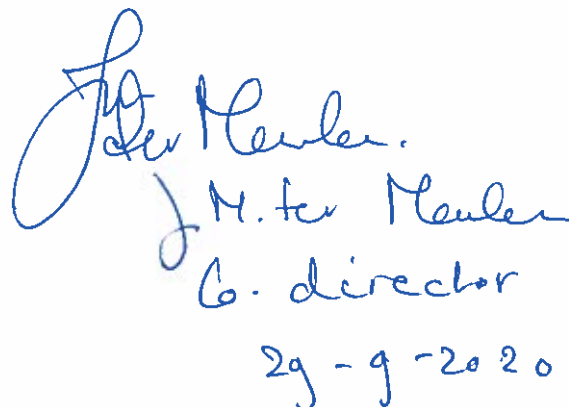 ter Meulen.
M. ter Meulen
Co. director
29-9-2020